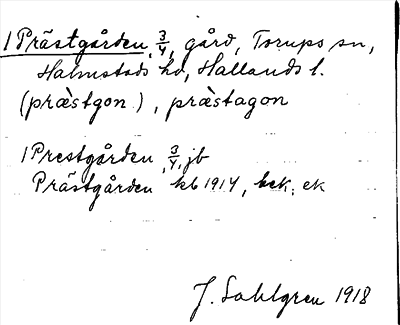 1 Prästgården, 3/4, gård, Torups sn,
Halmstads hd, Hallands l.
(præ̀stgon), præ̀stagon
1 Prestgården, 3/4, jb
Prästgården kb 1914, bek. ek
J. Sahlgren 1918